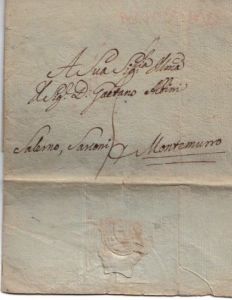 A Sua Sig.ria Ill.ma
Il Sig.r D. Gaetano Albini
Salerno, Sarconi p Montemurro